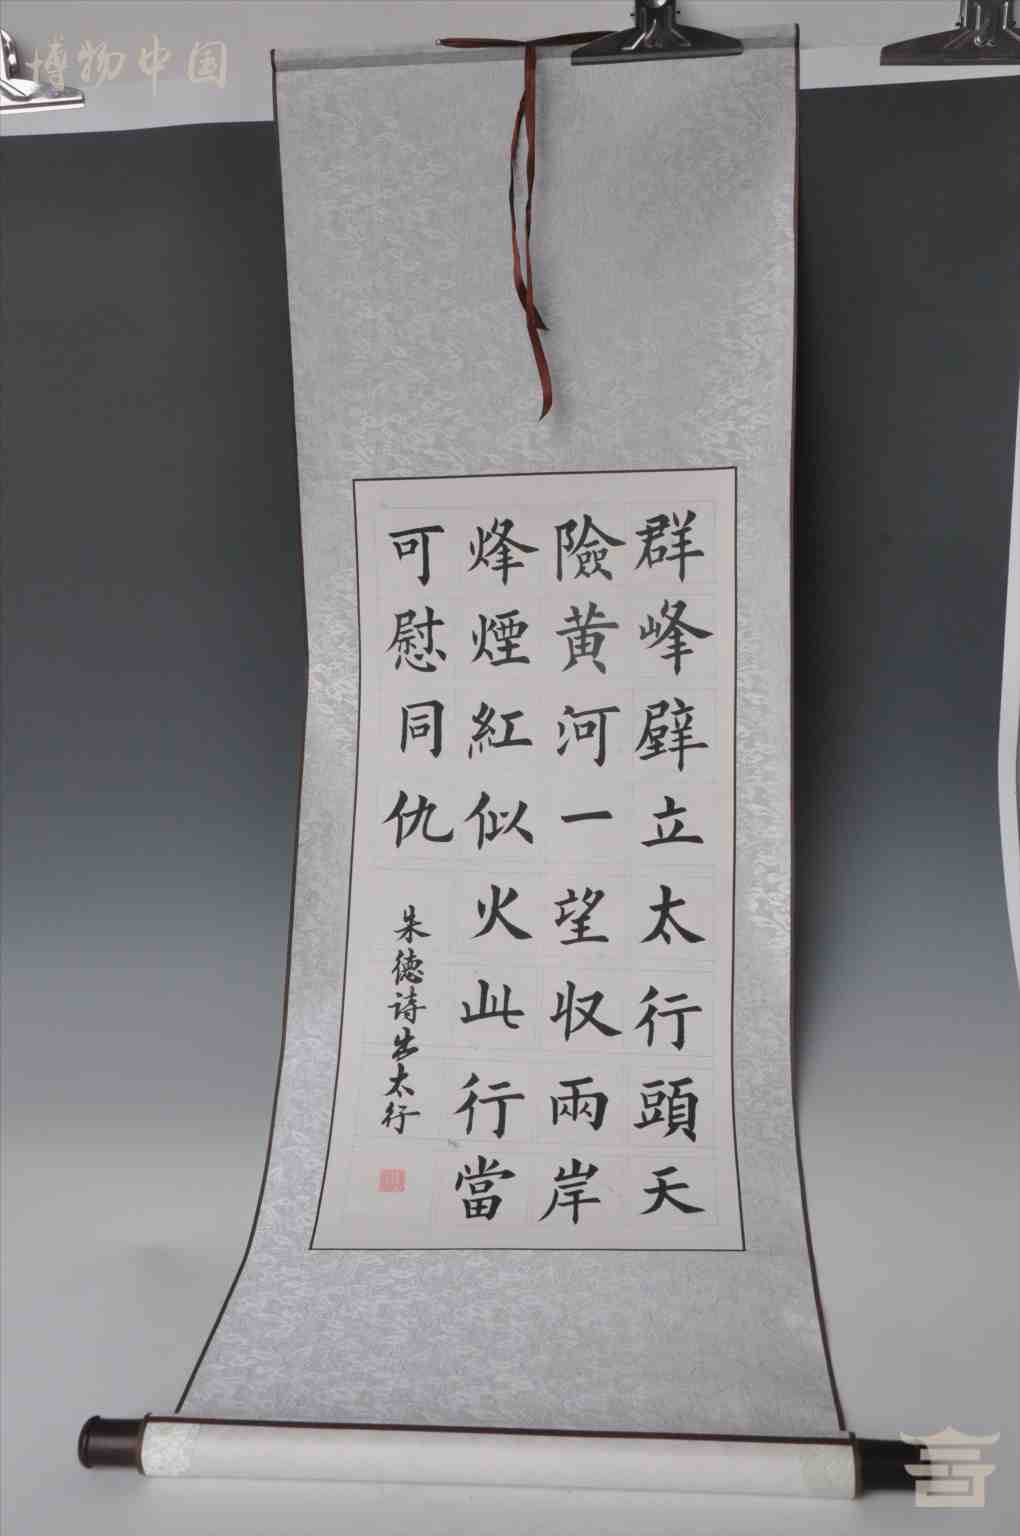 群峰壁立太行頭天
險黄河一望収兩岸
烽煙紅似火此行當
可慰同仇
朱德诗出太行
博物中国